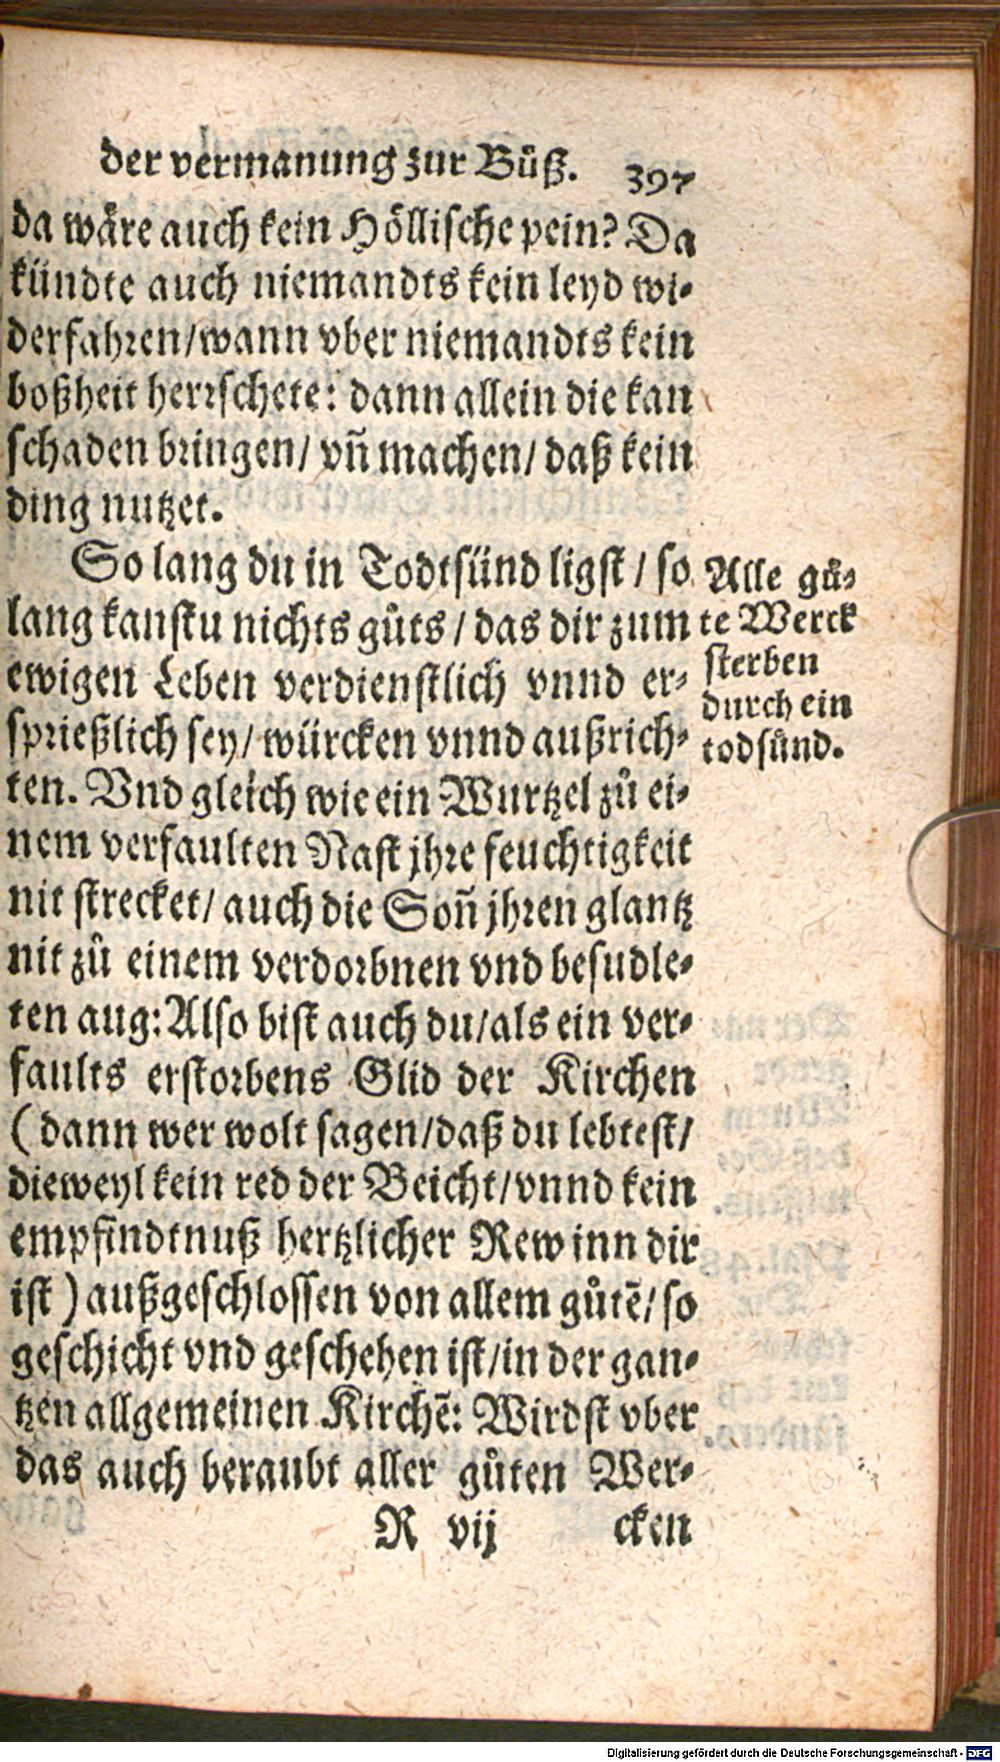 der vermanung zur Bůß. 397
da wåre auch kein Höllische pein? Da
kündte auch niemandts kein leyd wi-
derfahren/wann vber niemandts kein
boßheit herrschete: dann allein die kan
schaden bringen/ vñ machen/ daß kein
ding nutzet.
So lang du in Todtsünd ligst / so
lang kanstu nichts gůts / das dir zum
ewigen Leben verdienstlich vnnd er-
sprießlich sey/ würcken vnnd außrich-
ten. Vnd gleich wie ein Wurtzel zů ei-
nem verfaulten Nast jhre feuchtigkeit
nit strecket/ auch die Soñ jhren glantz
nit zů einem verdorbnen vnd besudle-
ten aug: Also bist auch du/als ein ver-
faults erstorbens Glid der Kirchen
(dann wer wolt sagen/daß du lebtest/
dieweyl kein red der Beicht/vnnd kein
empfindtnuß hertzlicher Rew inn dir
ist ) außgeschlossen von allem gůtē/ so
geschicht vnd geschehen ist/in der gan-
tzen allgemeinen Kirchē: Wirdst vber
das auch beraubt aller gůten Wer-
R vij cken
Alle gů-
te Werck
sterben
durch ein
todsünd.
Digitalisierung gefördert durch die Deutsche Forschungsgemeinschaft - DFG